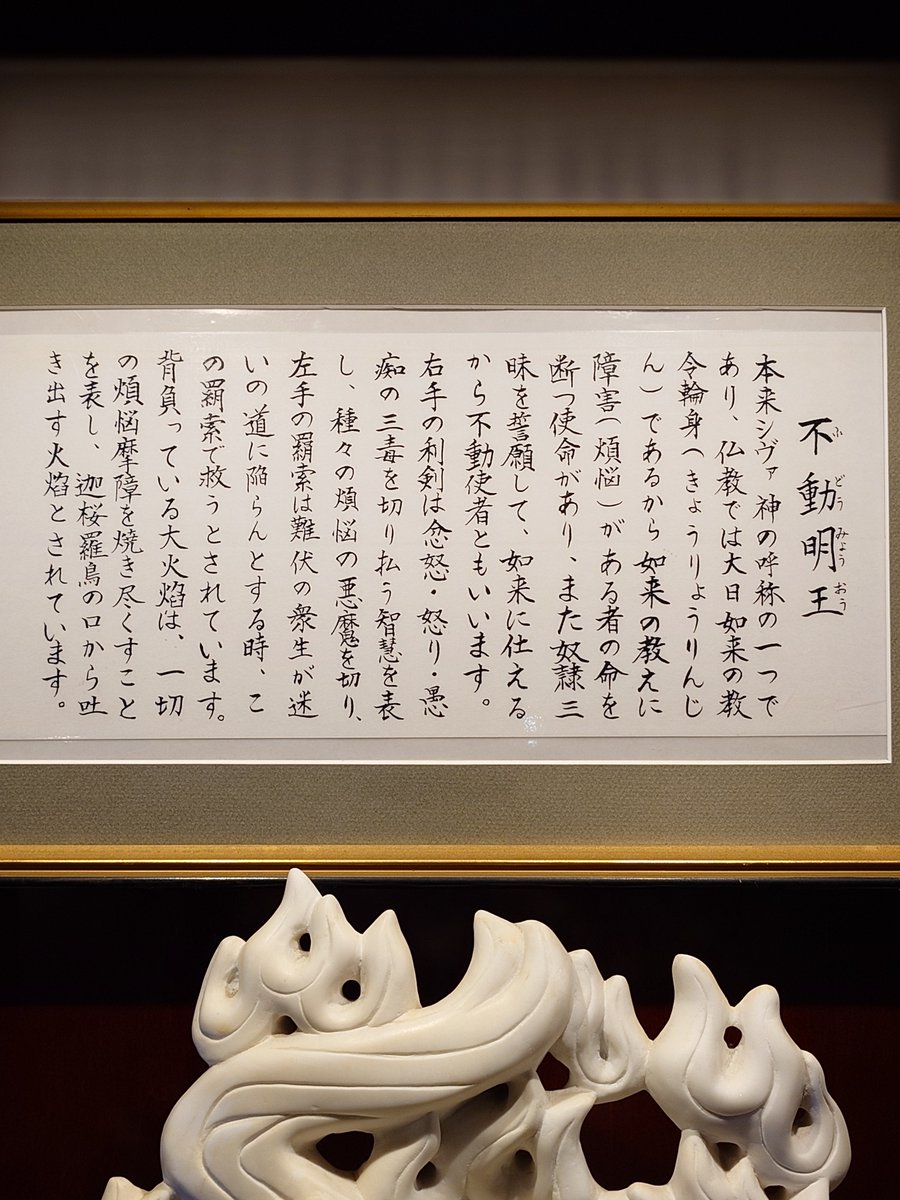 不動明王
ふどうみょうおう
本来シヴァ神の呼称の一つで
あり、仏教では大日如来の教
令輪身(きょうりょうりんじ
ん)であるから如来の教えに
障害(煩悩)がある者の命を
断つ使命があり、また奴隷三
昧を誓願して、如来に仕える
から不動使者ともいいます。
右手の利剣は忿怒・怒り・愚
痴の三毒を切り払う智慧を表
し、種々の煩悩の悪魔を切り、
左手の羂索は難伏の衆生が迷
いの道に陥らんとする時、こ
の羂索で救うとされています。
背負っている大火焰は、一切
の煩悩摩障を焼き尽くすこと
を表し、迦桜羅鳥の口から吐
き出す火焰とされています。